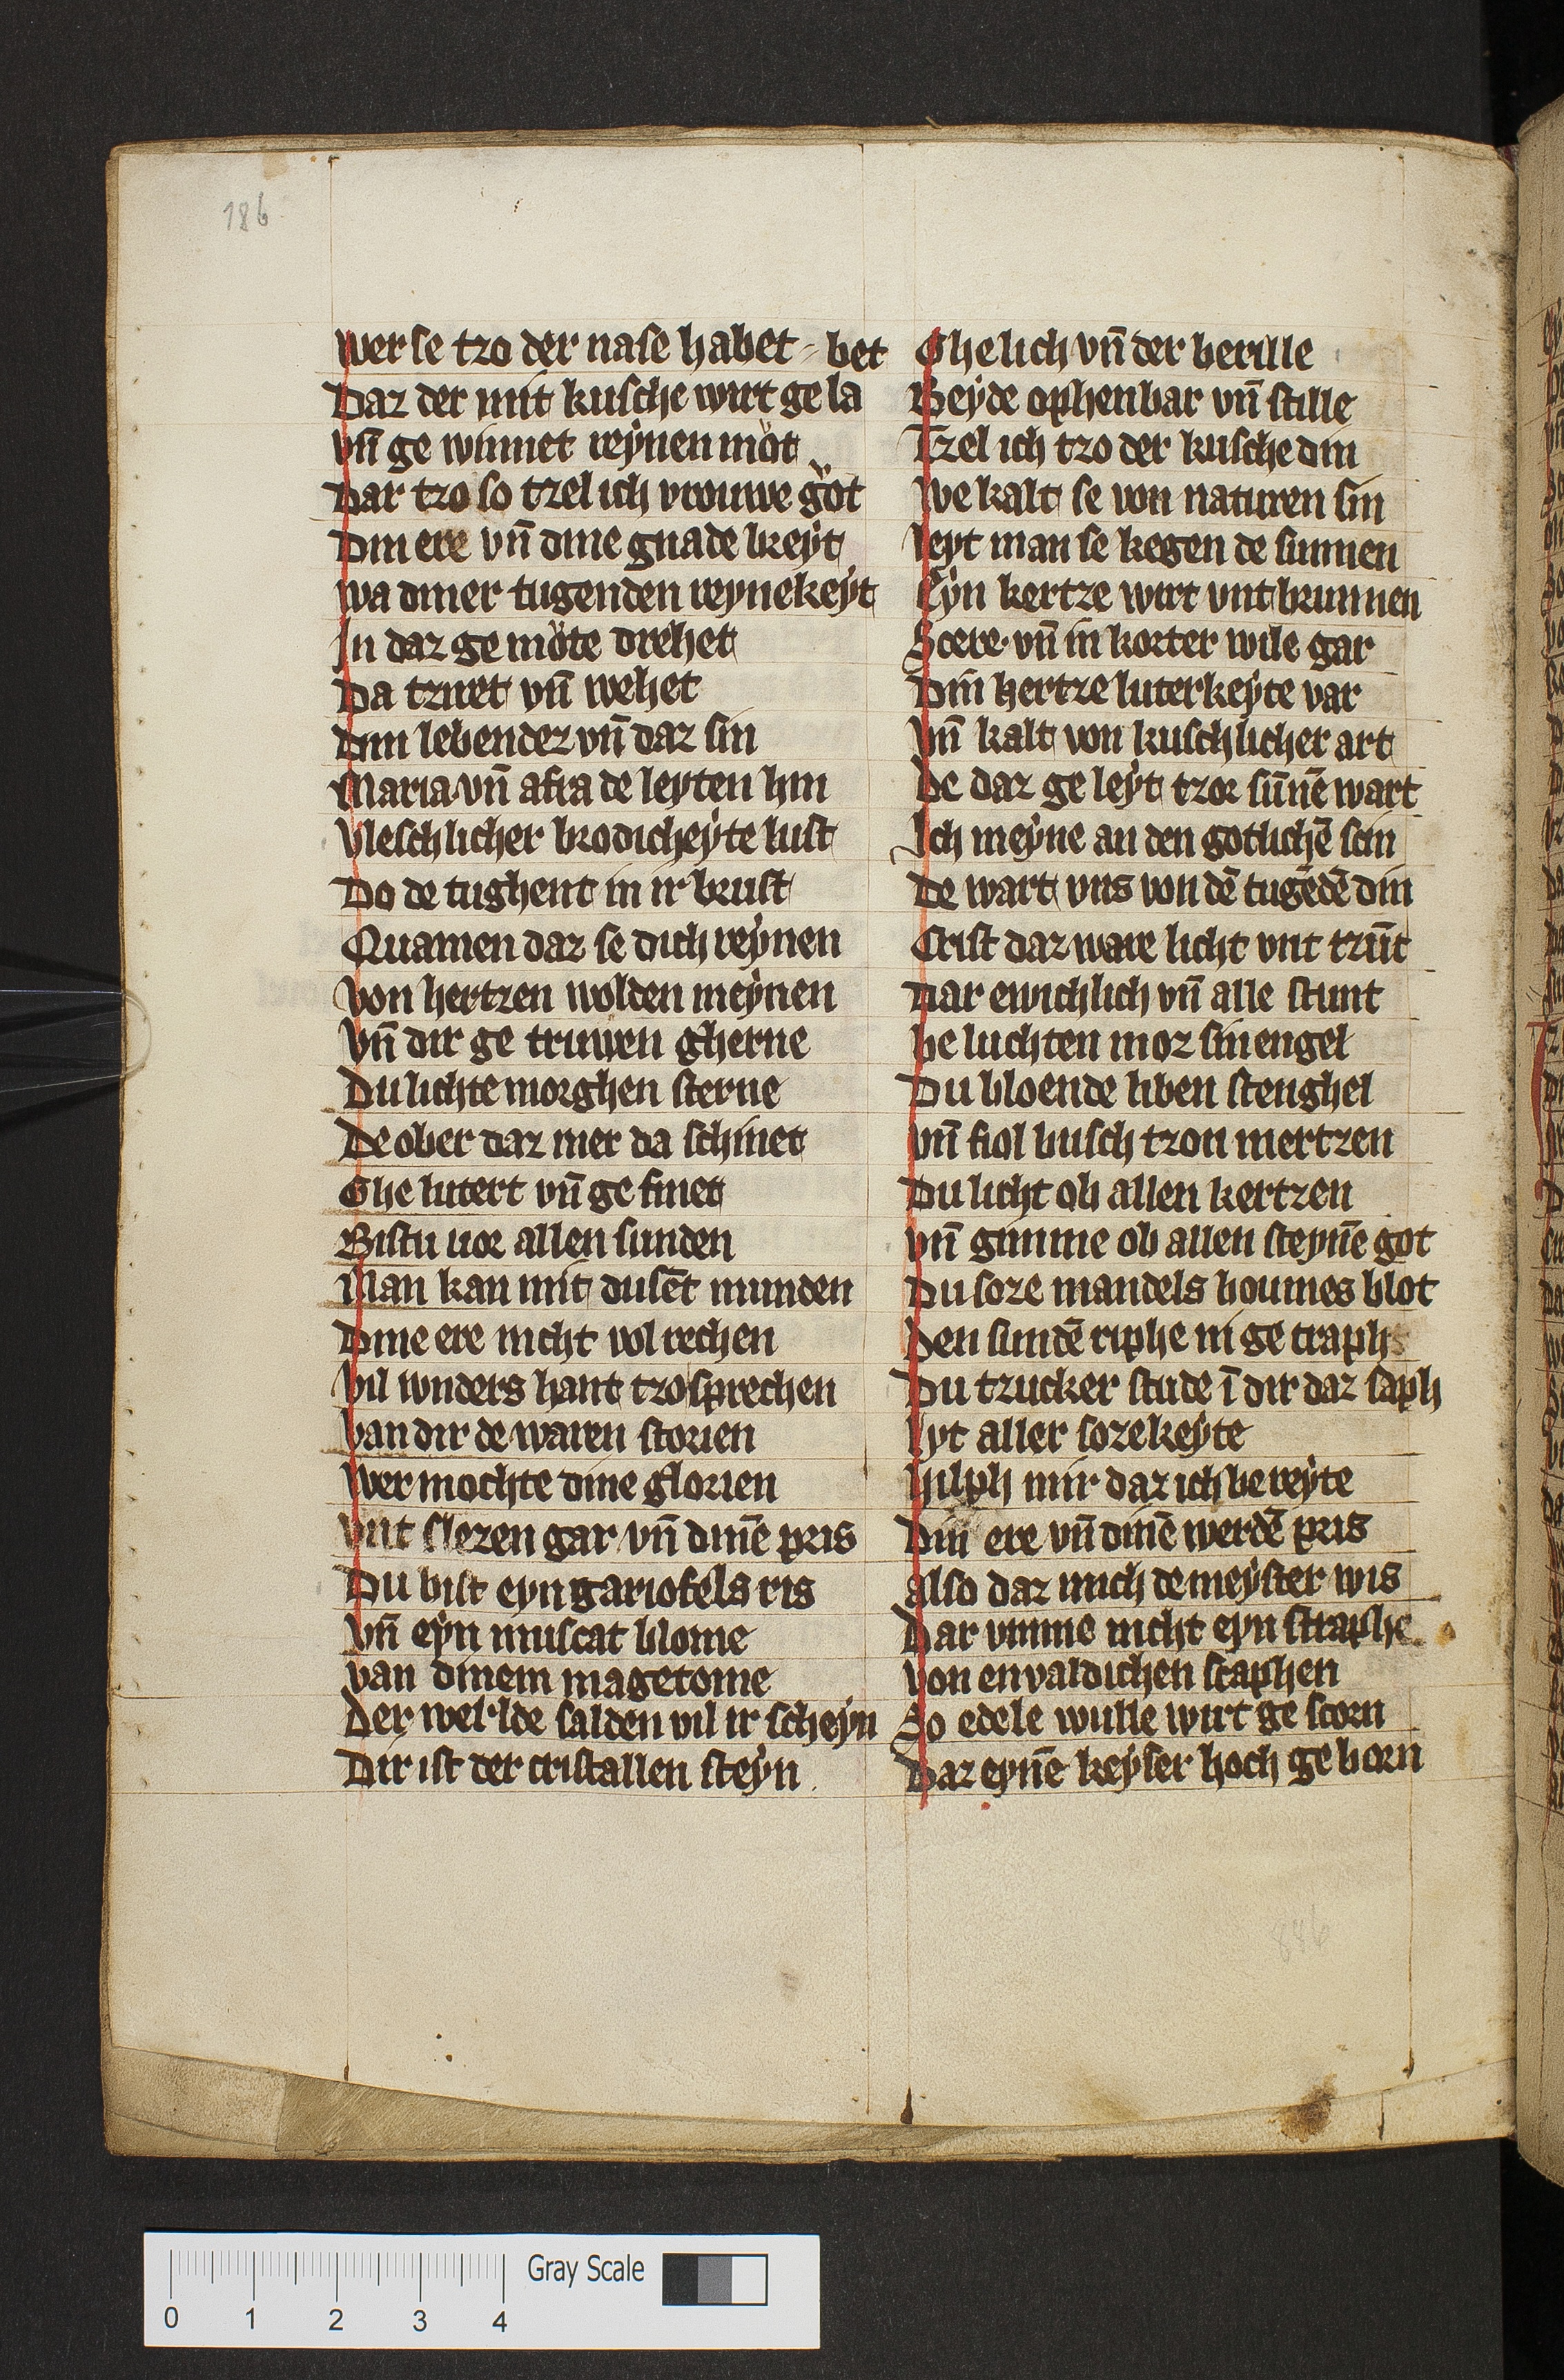 186
wer se tzo der nase habet // bet
Daz der mit kusche wirt ge la
vn̄ ge winnet reẏnen mͦot
Dar tzo so tzel ich vrouwe gͦot
Din ere vn̄ dine gnade breẏt
wa diner tugenden reynekeẏt
In daz ge mͦote drehet
Da tzuet vn̄ wehet
Din lebendez vn̄ daz sin
Maria vn̄ afra de leyten hin
Vleschlicher brodicheẏte lust
Do de tughent in ir brust
Quamen daz se dich reẏnen
Von hertzen wolden meẏnen
Vn̄ dir ge truwen gherne
Du lichte morghen sterne
De ober daz mer da schinet
Ghe lutert vn̄ ge finet
Bistu uor allen sunden
Man kan mit dusēt munden
Dine ere nicht vol rechen
Vil wnders hant tzo sprechen
Van dir de waren storien
Wer mochte dine glorien
Vnt slezen gar vn̄ dinē pris
Du bist eyn gariofels ris
Vn̄ eẏn muscat blome
van dinem magetome
Der werlde salden vil ir scheẏn
Dir ist der cristallen steẏn
Ghe lich vn̄ der berille
Beẏde ophenbar vn̄ stille
Tzel ich tzo der kusche din
We kalt se von naturen sin
Leyt man se kegen de sunnen
Eẏn kertze wirt vnt brunnen
Scere vn̄ in korter wile gar
Din hertze luterkeẏte var
Vn̄ kalt von kuschlicher art
De daz ge leẏt tzor sūnē wart
Ich meẏne an den gotlichē scin
De wart vns von dē tugēdē din
Crist daz ware licht vnt tzūt
Dar ewichlich vn̄ alle stunt
be luchten moz sin engel
Du bloende liben stenghel
vn̄ fiol busch tzon mertzen
Du licht ob allen kertzen
vn̄ gimme ob allen steynē got
Du soze mandels boumes blot
Den sundē riphe ni ge traph
Du tzucker stude ī dir daz saph
Lyt aller sozekeẏte
Hilph mir daz ich be reẏte
Din ere vn̄ dinē werdē pris
also daz mich de meẏster wis
Dar vmme nicht eyn straphe
von envaldichen scaphen
So edele wulle wirt ge scorn
Daz eynē keẏser hoch ge born
886
Gray Scale
0 1 2 3 4